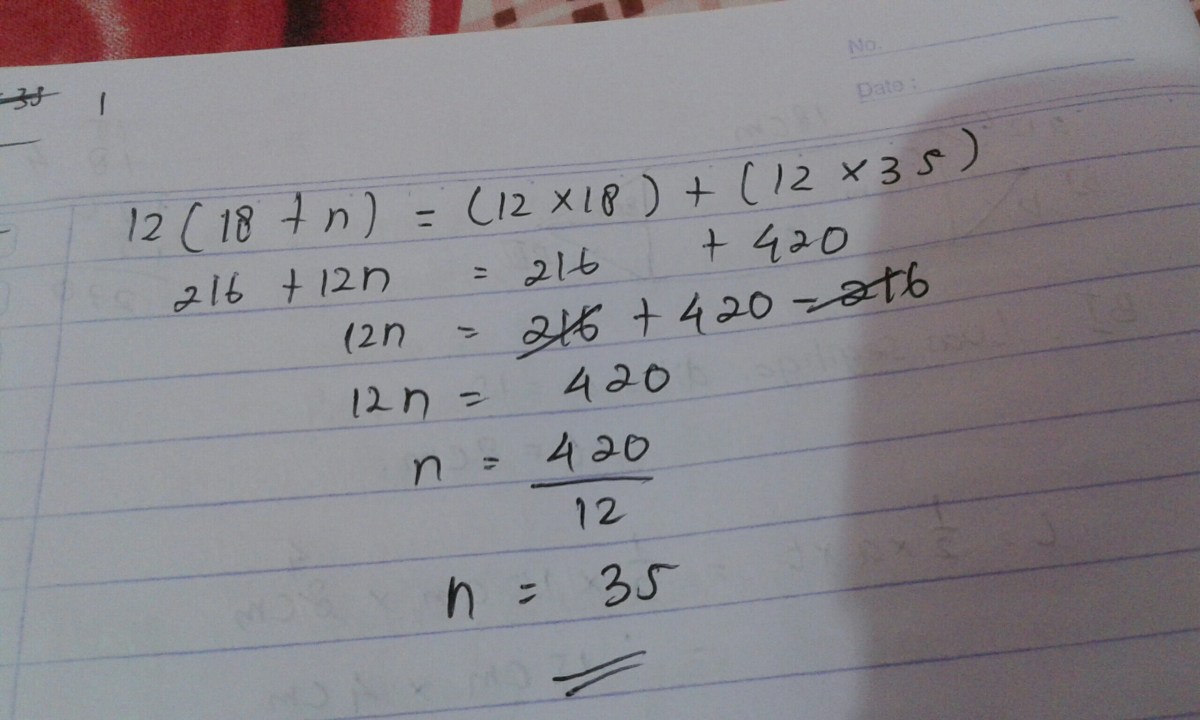 No.
Date :
38 1
12 ( 18 + n ) = (12 × 18 ) + ( 12 × 35 )
216 + 12n = 216 + 420
12n = 216 + 420 - 216
12n = 420
n = 420
12
n = 35